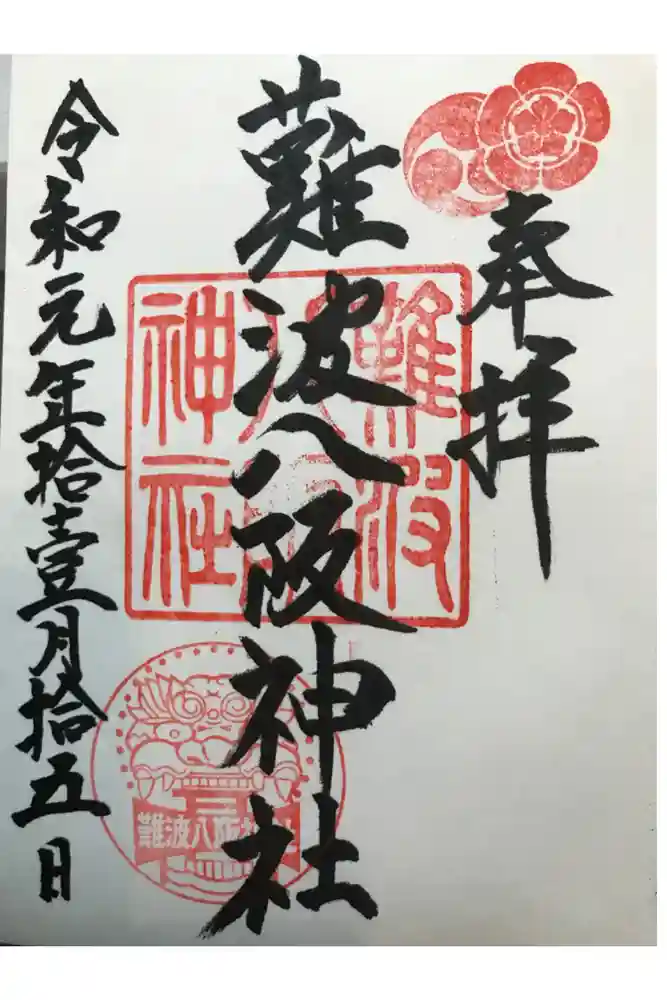 奉拝
難波八阪神社
令和元年拾壹月拾五日
難波
八阪
神社
難波八阪神社